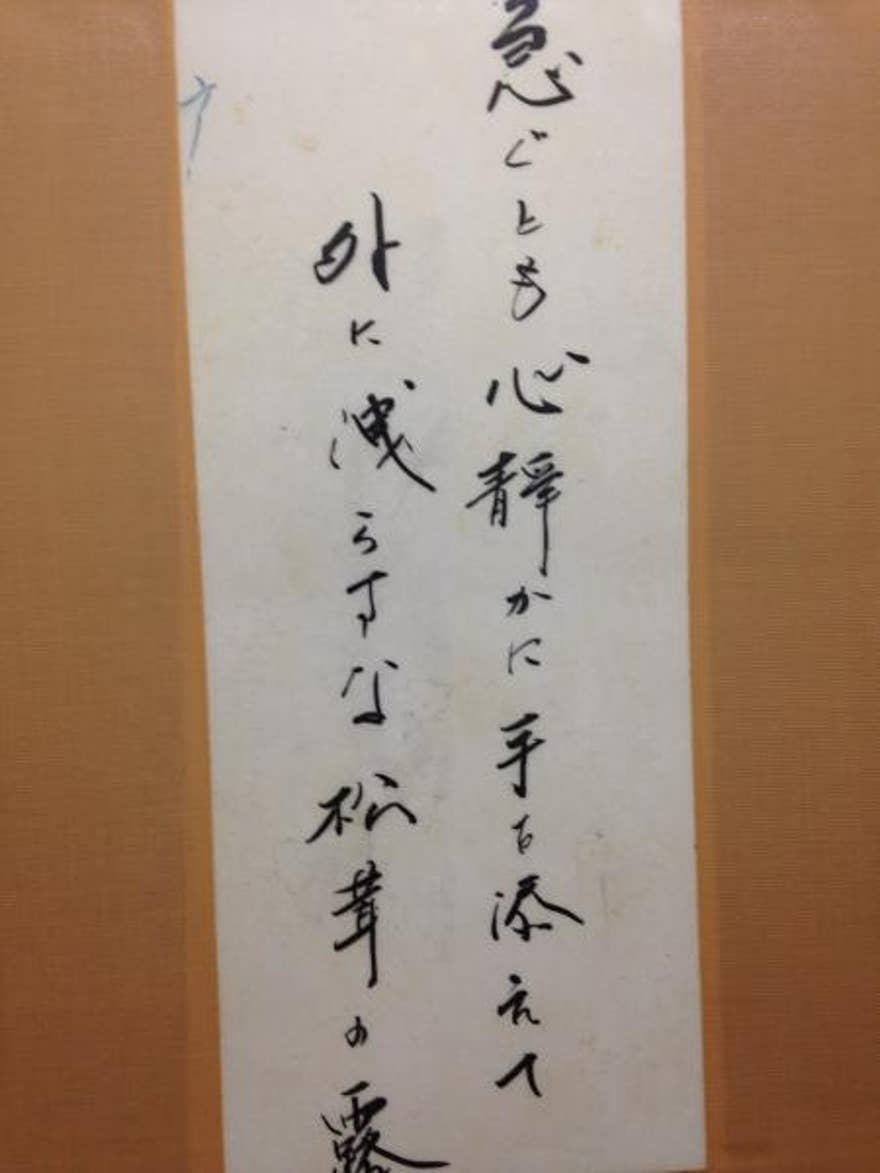 急ぐとも心靜かに手を添えて
外に洩らすな松茸の露